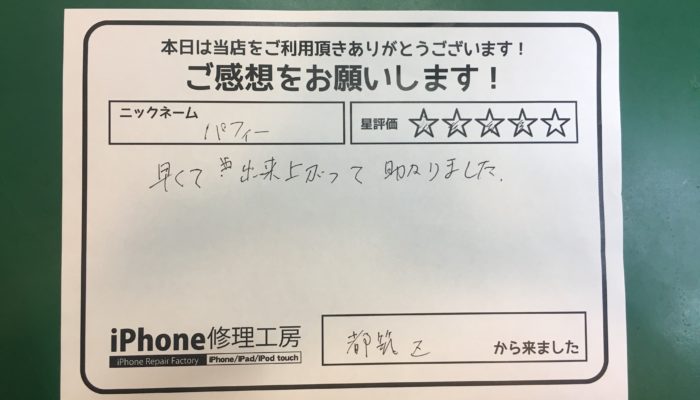 本日は当店をご利用頂きありがとうございます！
ご感想をお願いします！
ニックネーム
パフィー
星評価 ☆☆☆☆☆
早くて出来上がって助かりました。
iPhone修理工房
iPhone Repair Factory iPhone/iPad/iPod touch
都筑区 から来ました